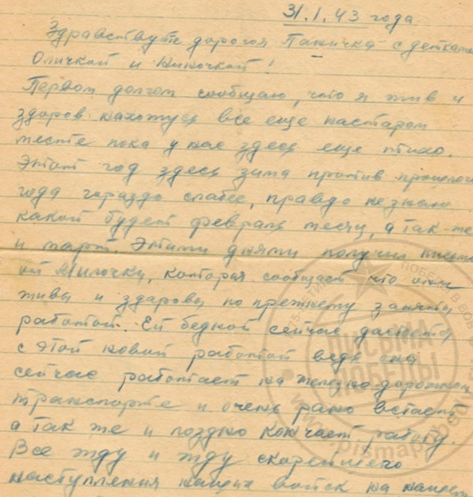 31.1.43 года
Здравствуйте дорогая Паничка с детками
Оличкой и Ниночкой!
Первом долгом сообщаю, что я жив и
здоров нахожусь все еще настаром
месте пока у нас здесь еще тихо.
Этот год здесь зима против прошлого
года гораздо слабее, правдо незнаю
какой будет февраль месяц, а так-же
и март. Этими днями получил письмо
от Милочки, которая сообщает что они
живы и здоровы по прежнему заняты
работой. Ей бедной сейчас достается
с этой новой работой ведь она
сейчас работает на железно-дорожном
транспорте и очень рано встает
а так же и поздно кончает работу.
Все жду и жду скорейшего
наступления наших войск на нашем
ПИСЬМА
ПОБЕДЫ